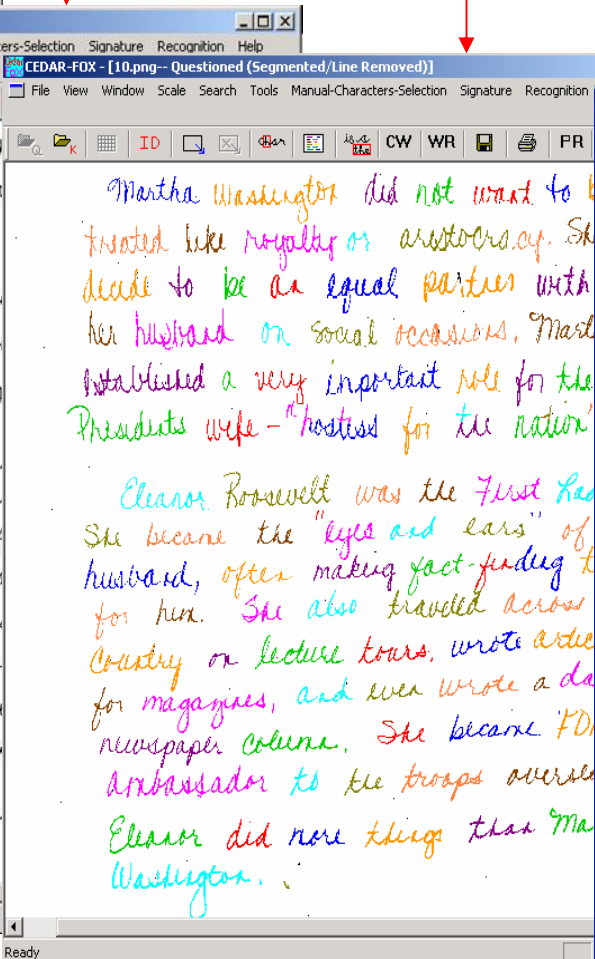 ers-Selection Signature Recognition Help
CEDAR-FOX - [10.png-- Questioned (Segmented/Line Removed)]
File View Window Scale Search Tools Manual-Characters-Selection Signature Recognition
Q K ID Char is a the CW WR PR
Martha Washington did not want to
treated like royalty or aristocracy. She
decide to be an equal partner with
her husband on social occasions. Mart
Established a very important role for the
Presidents wife - "hostess for the nation"
Eleanor Roosevelt was the First Lad
She became the "eyes and ears" of
husband, often making fact-finding t
for him. She also traveled across
Country on lecture tours, wrote artic
for magazines, and even wrote a da
newspaper column. She became FD
ambassador to the troops overse
Eleanor did more things than Ma
Washington.
Ready